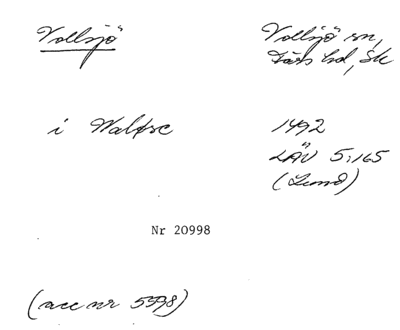 Vollsjö
Vollsjö sn,
Färs hd, Sk
i Walsøe
1492
LÄU 5:165
(Lund)
Nr 20998
(acc nr 5598)